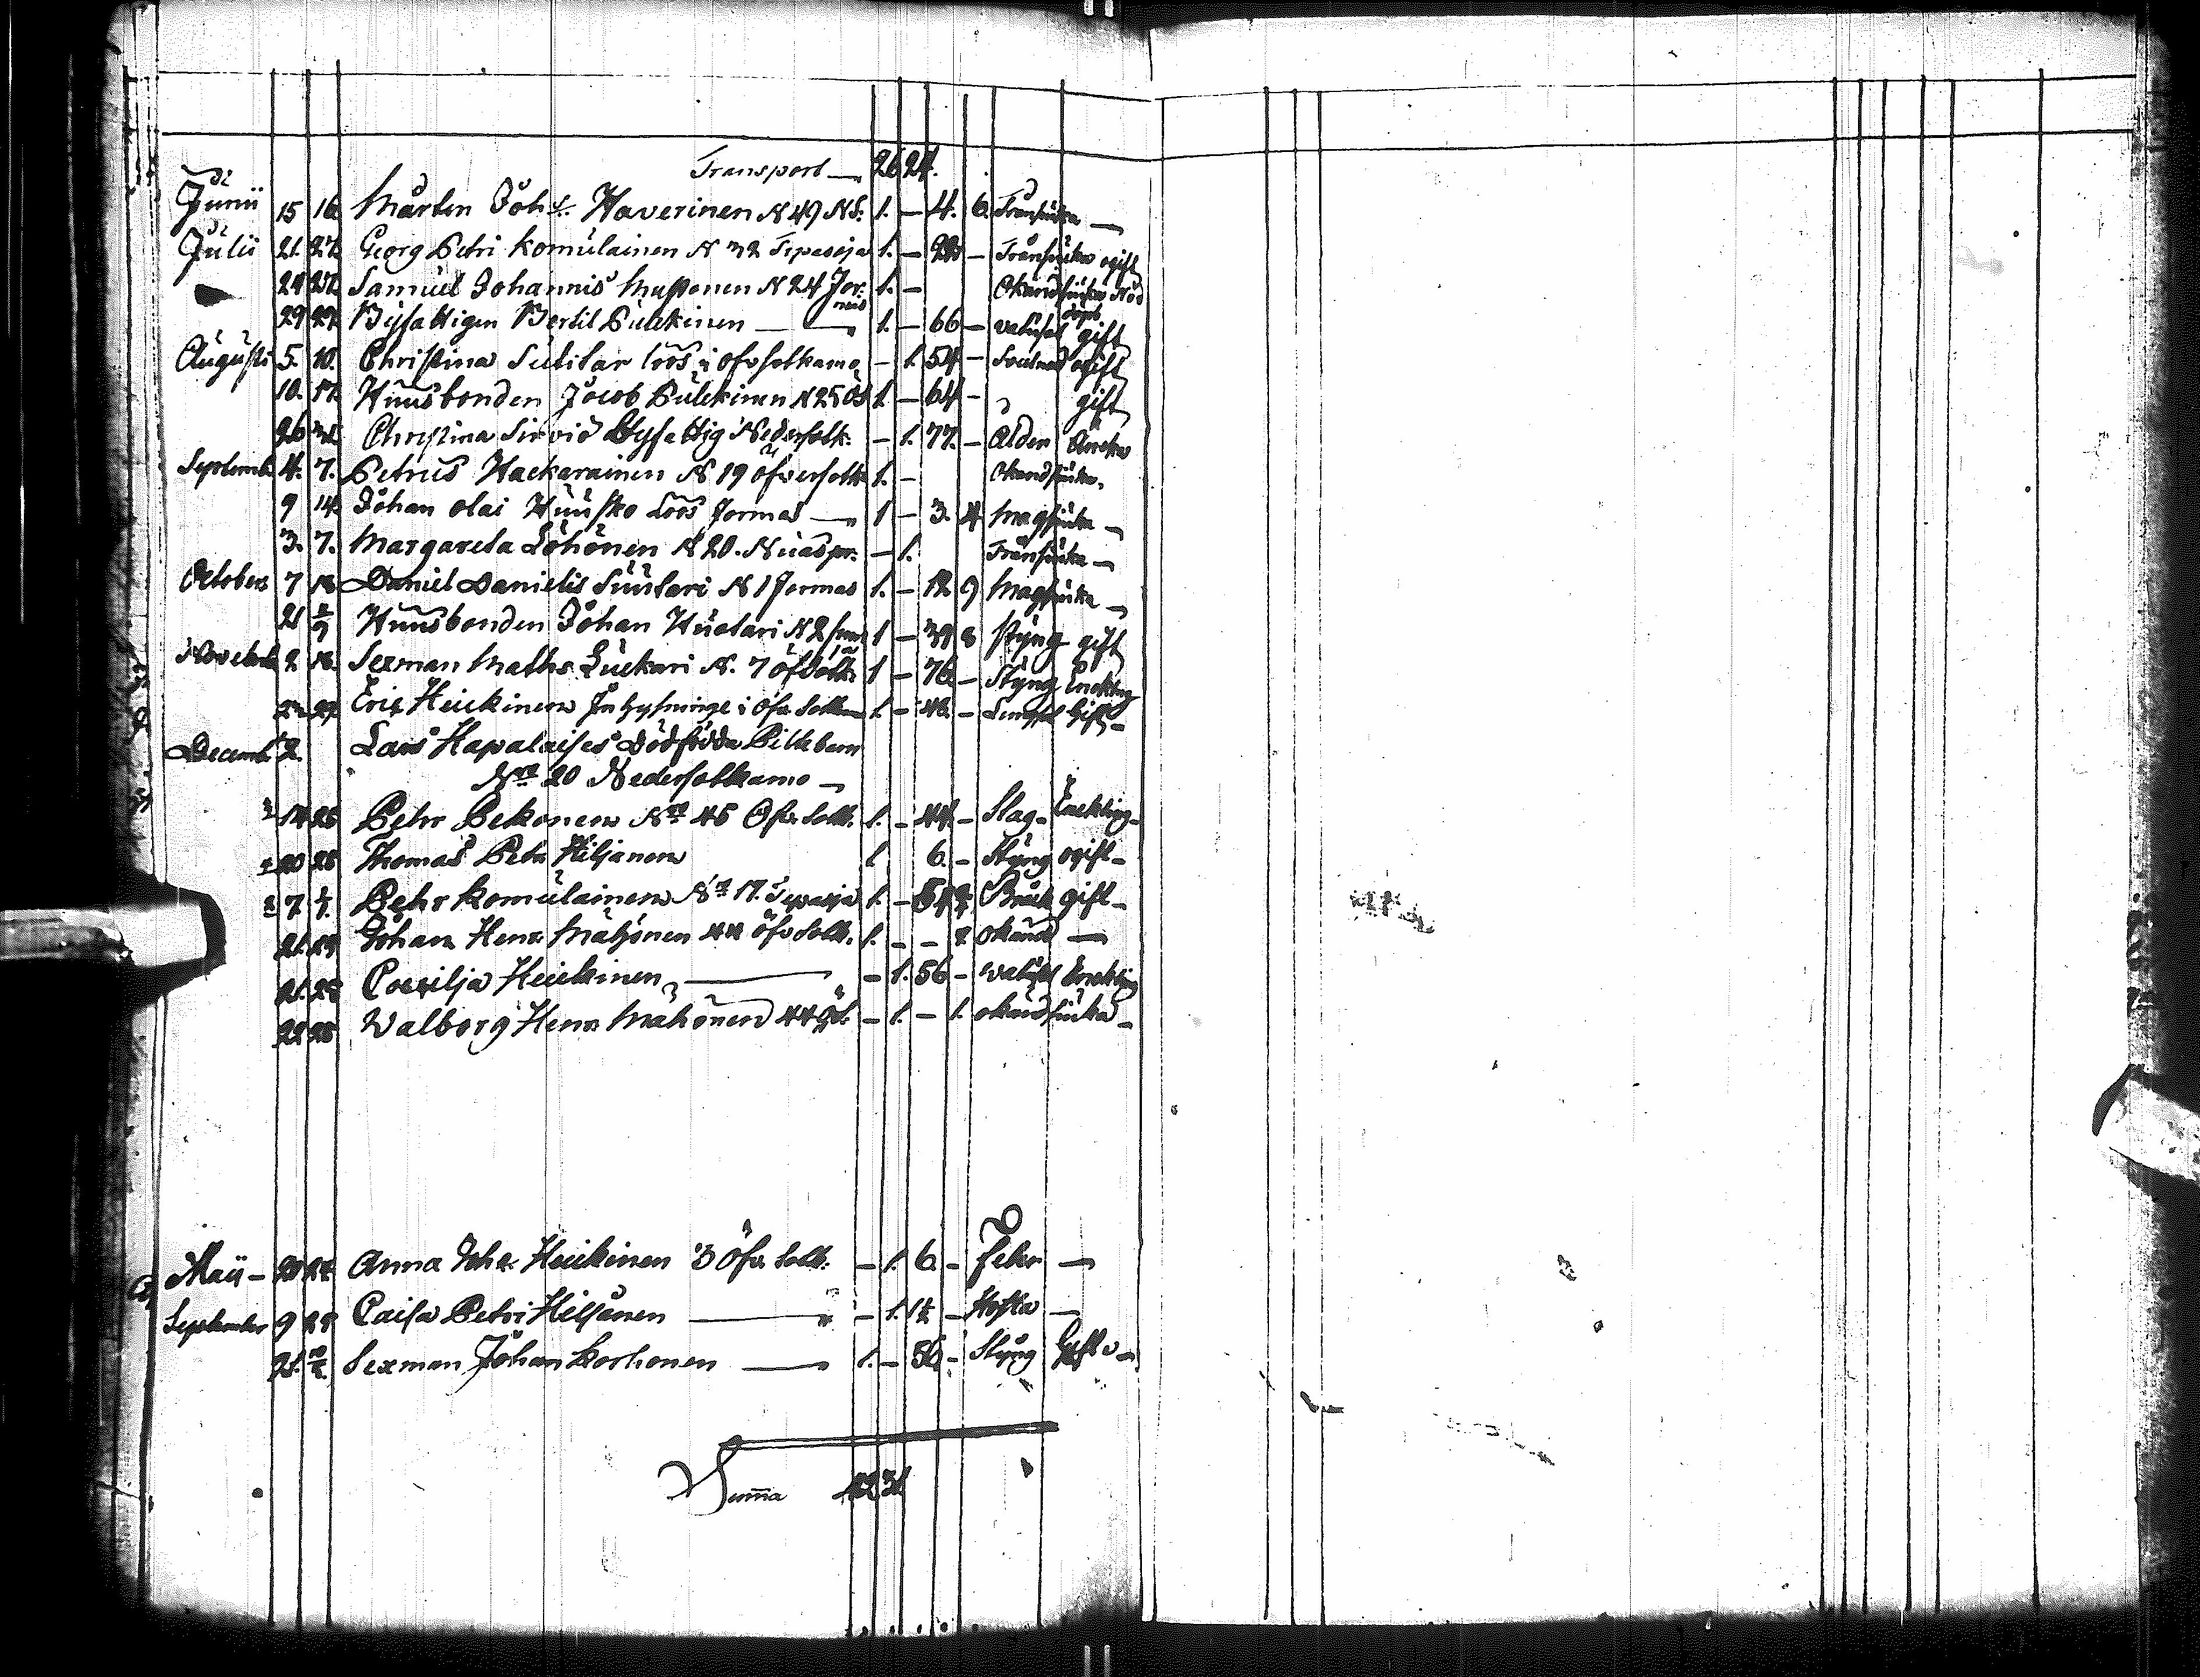 Transport — 26 24.
Junii 15 16 Mårten Joh: Haverinen N 49 NS: 1. — 4. 6. Trånsiuka —
Julii 21. 27. Georg Petri Komulainen N 32 Tipasoja 1. — — Trånsiuka ogift
29 27. Samuel Johannis Mustonen N 24 Jormas 1. — Okänd siuka Nöd döpt
29 29. Bysattigen Bertil Pulckinen — 1. — 66 — gift
Augusti 5. 10. Christina Sutitar lös i Öfv sotkamo — 1. 54 — ogift
10. 17. Huusbonden Jacob Pulckinen N 25 ÖS 1. — 64 — gift
26 Christina Sirviö Bysattig Nedersotk: — 1. 77. — Ålder Äncka
Septemb. 4. 7. Petrus Hackarainen N 19 Öfversotk 1. — Okand siuka.
9 14. Johan Olai Huusko Loos Jormas — 1 — 3. 4 Magsiuka —
3. 7. Margareta Löhönen N 20. Nuaspr. — 1. Trånsiuka —
October 7 18 Daniel Danielis Suutari N 1 Jormas 1. — 12 9 Magsiuka —
21 2/9 Huusbonden Johan Huotari N 2 1 — 39 8 Styng gift
Novemb 2 18. Sexman Maths Luckari N. 7 Öfsotk. 1 — 76. — Styng Enckling
29. Eric Heickinen Inhysninge i Öfv. Sotkamo 1. — 48. — Gift —
Decemb. 2. Lars Hapalaises Dödfödda Piltebarn
Nro 20 Nedersotkamo —
14 26 Pehr Pekonen Nro 46 Öfv. Sotk. 1. — 44. — Slag — Enckling —
20 28 Thomas Petr Hiljanen 1 6. — Styng ogift —
7. 1/1. Pehr Komulainen Nro 17. Tipasoja 1. — Bråck gift —
21. 29 Johan Henr. Mähönen 44 Öfv Sotk. 1. — — 2 okänd —
21. 28 Caecilja Heickinen, — — 1. 56 — Enckling
22 28 Walborg Henr. Mähönen 44 ÖS. — 1. — 1. okänd siuka —
Maii — 20 22 Anna Joh: Heickinen 3 Öfv. Sotk: — 1. 6 — feber —
September 9 29 Caisa Petri Hiljänen — — 1. 1½ — Hosta —
21. Sexman Johan Korhonen — 1. — 56 — Styng Gift —
Summa 42 31